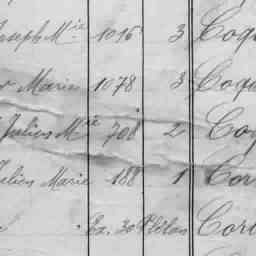 Joseph Mie 1016 3 Coq
Marie 1078 3 Coq
Julien Mie 708 2 Coq
Julien Marie 188 1 Cor
Ex. 30 Plélan Cor